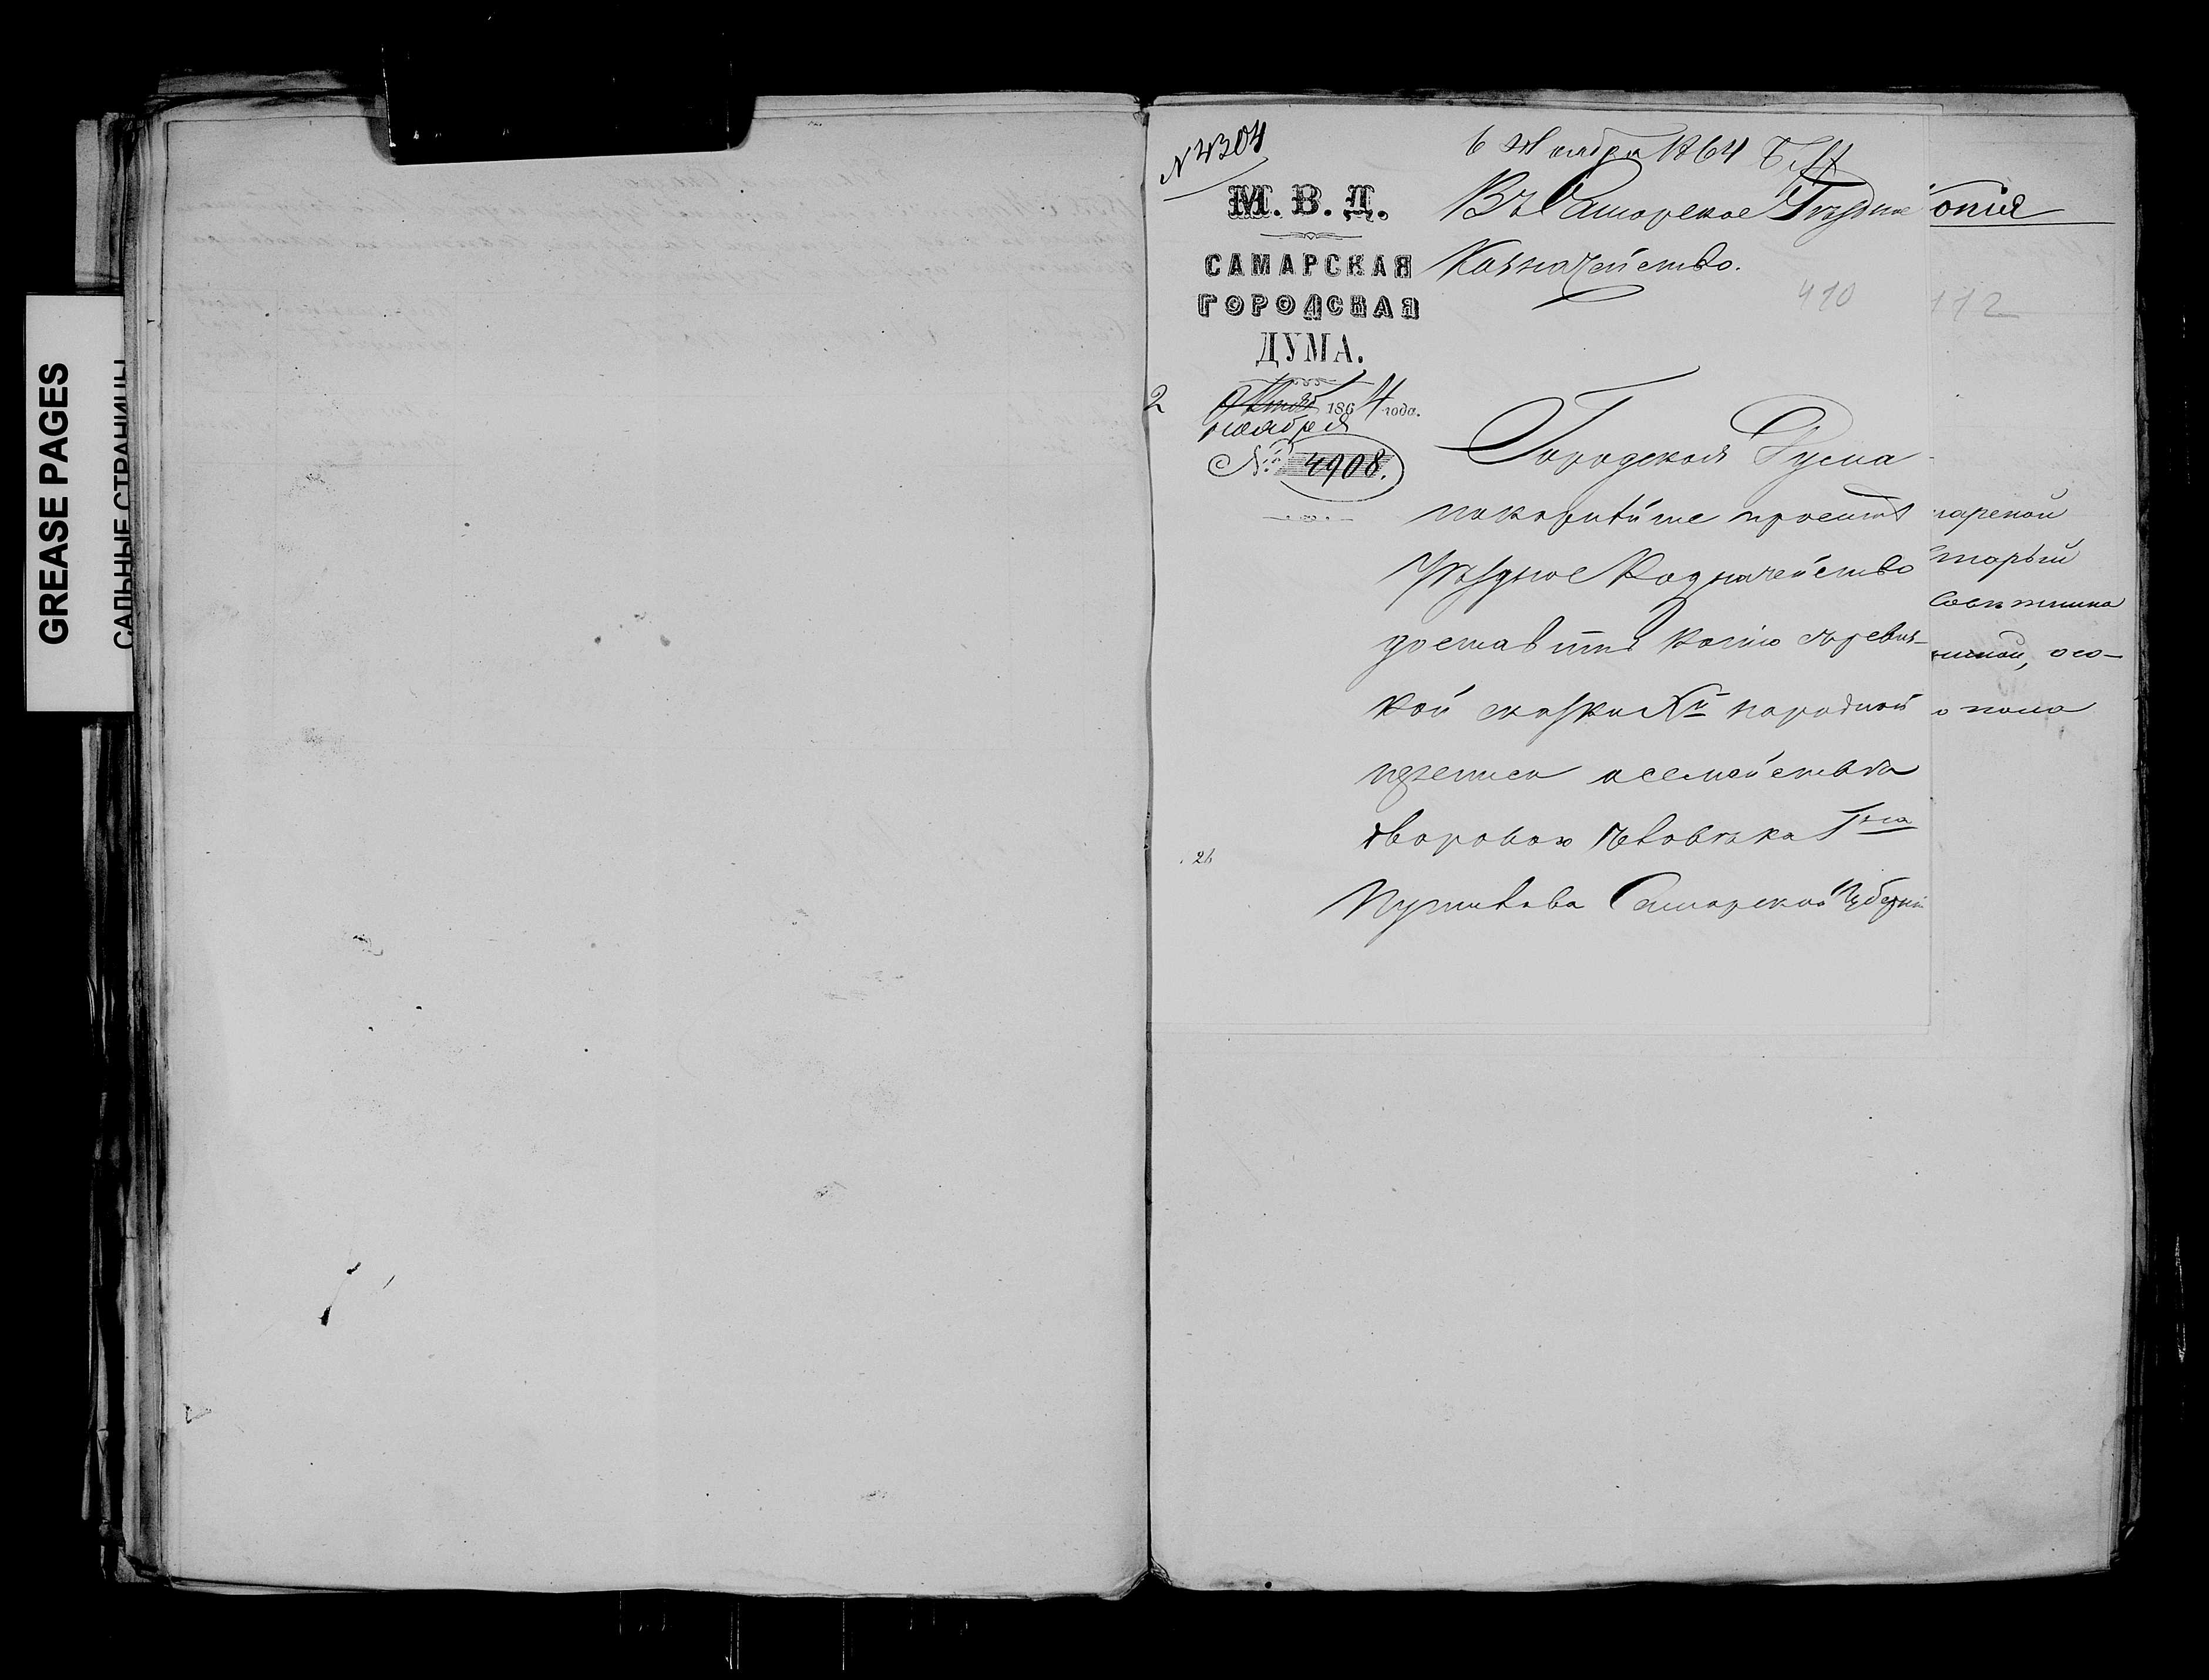 GREASE PAGES
САЛЬНЫЕ СТРАНИЦЫ
N 4304
6 Ноября 1864
М. В. Д.
САМАРСКАЯ
ГОРОДСКАЯ
ДУМА.
2 186 4 года.
ноября
№ 4908.
Въ Самарское Уѣздное
Казначейство.
410
Городская Дума
покорнѣйше проситъ
Уѣздное Казначейство
доставить копію съ ревиз-
кой сказки X й народной
переписи о семействѣ
двороваго человѣка Г на
Путилова Самарской Губерніи
26
опія
112
марской
старый
осо-
о пола